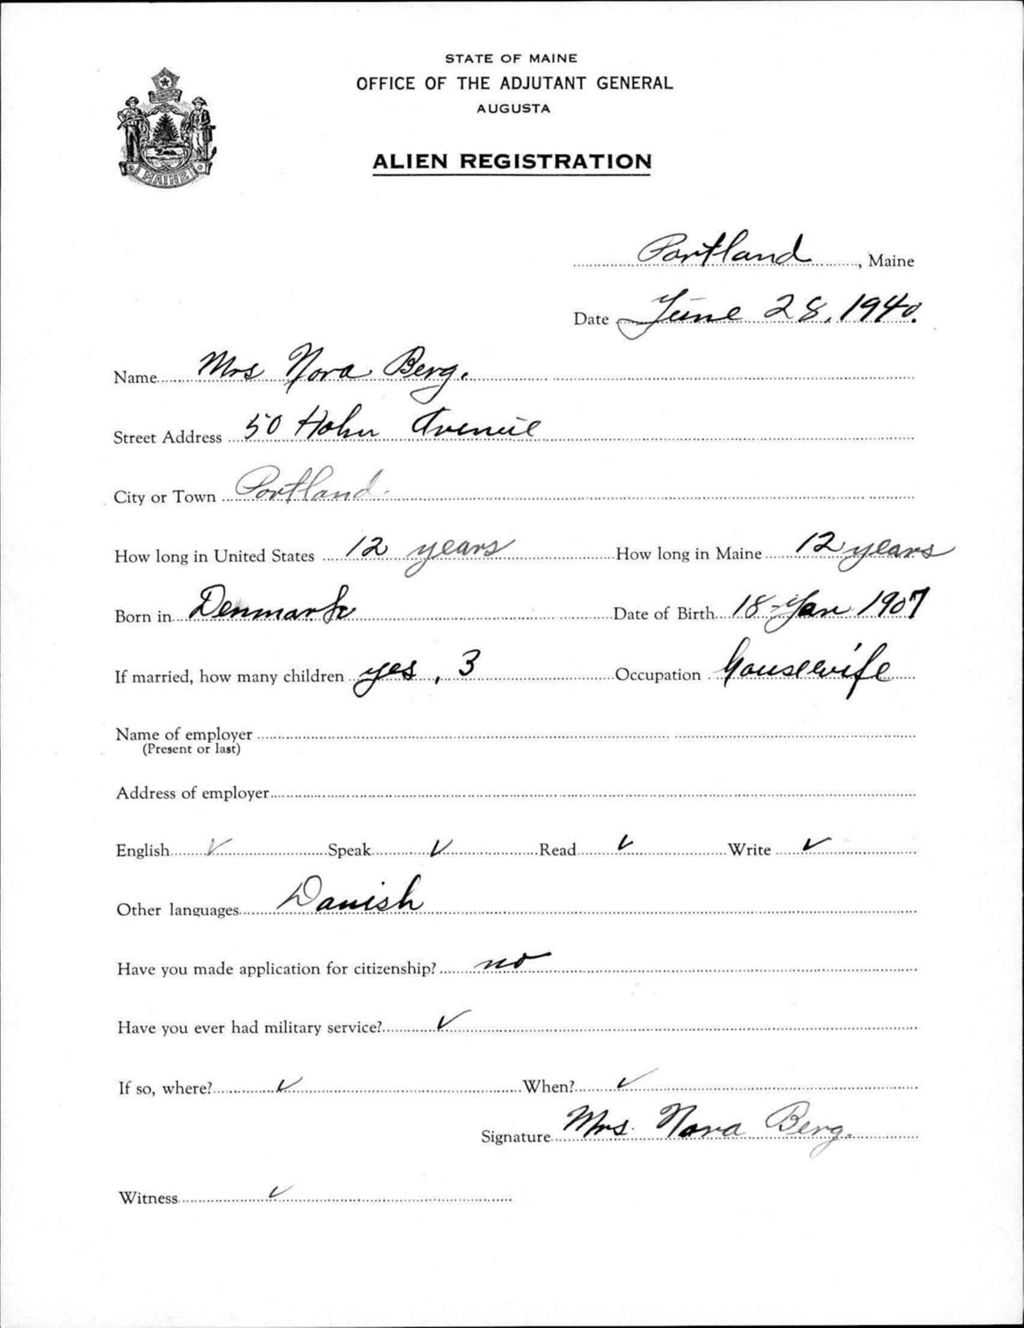 STATE OF MAINE
OFFICE OF THE ADJUTANT GENERAL
AUGUSTA
ALIEN REGISTRATION
MAINE
Portland, Maine
Date June 28, 1940.
Name Mrs Nora Berg.
Street Address 50 Avenue
City or Town Portland.
How long in United States 12 years How long in Maine 12 years
Born in Denmark Date of Birth 18-Jan 1907
If married, how many children yes, 3 Occupation Housewife
Name of employer
(Present or last)
Address of employer
English ✓ Speak ✓ Read ✓ Write ✓
Other languages Danish
Have you made application for citizenship? no
Have you ever had military service? ✓
If so, where? ✓ When? ✓
Signature Mrs. Nora Berg.
Witness ✓